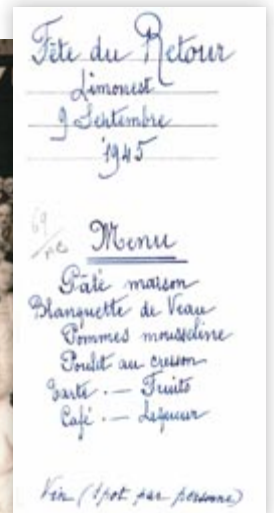 Fête du Retour
Limonest
9 Septembre
1945
Menu
Pâté maison
Blanquette de Veau
Pommes mousseline
Poulet au cresson
Tarte . — Fruits
Café . — Liqueur
Vin (1 pot par personne)